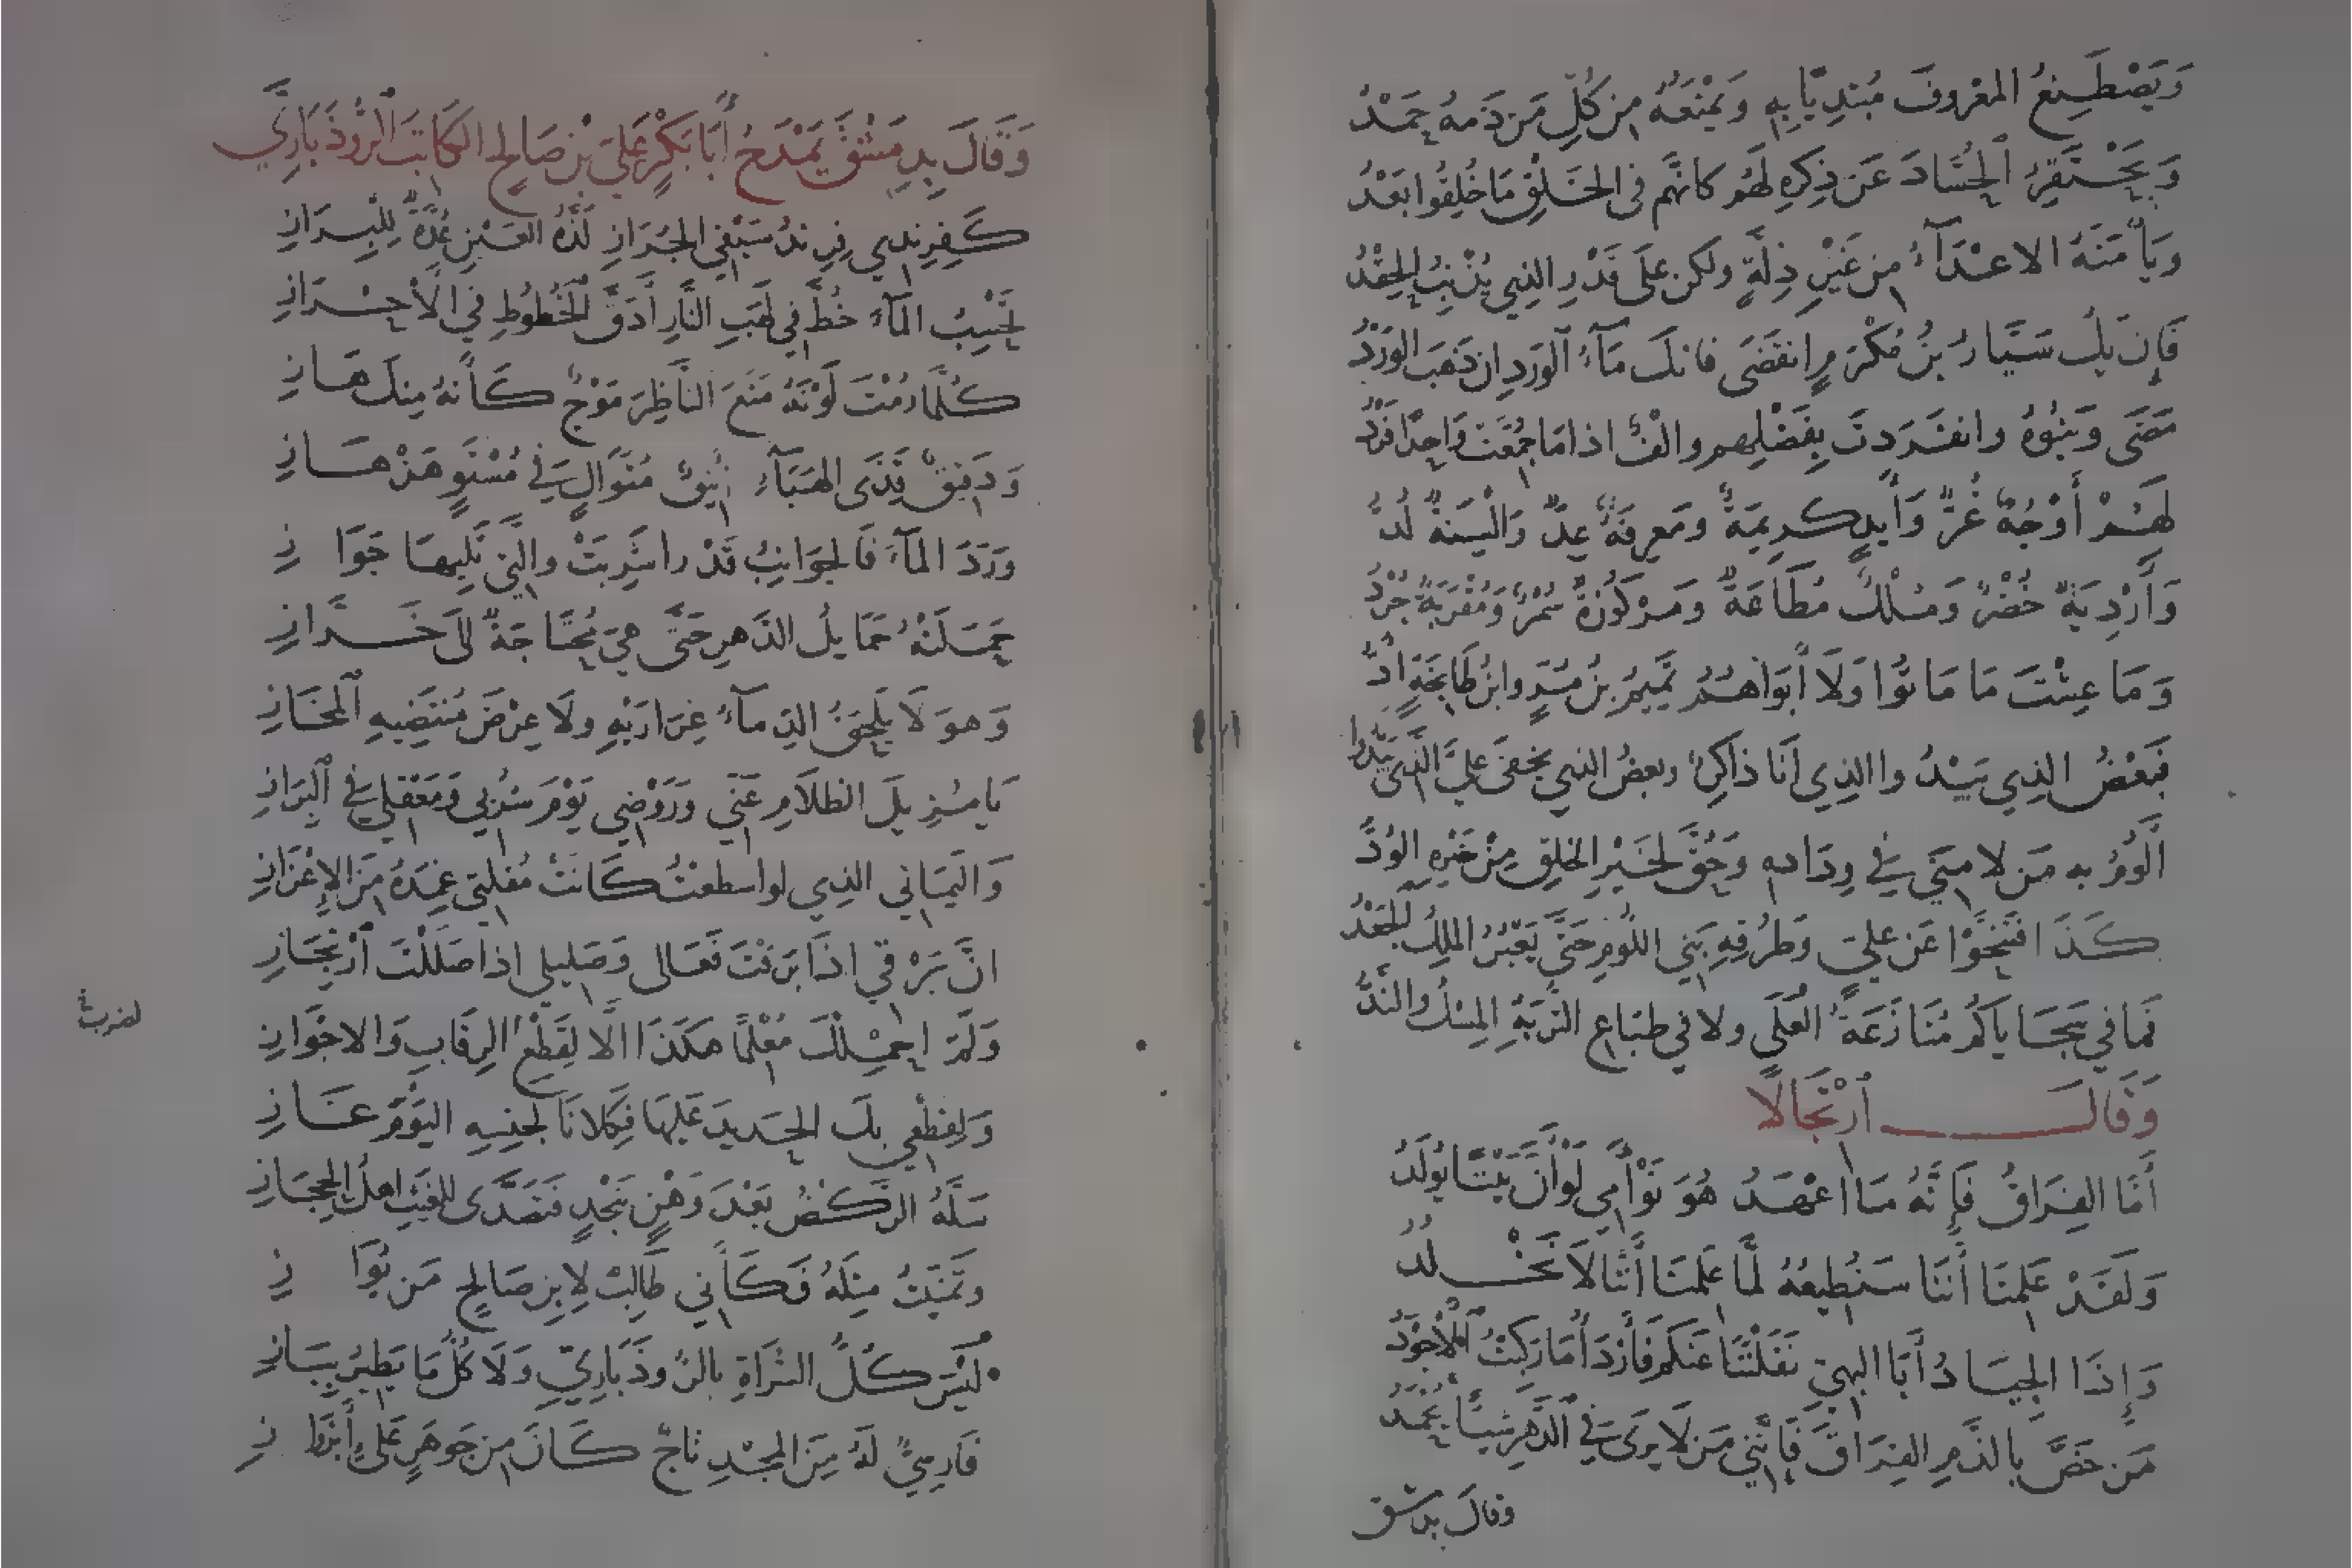 وَيَصْطَنِعُ المعْروفَ مُبتدِيًا بِهِ وَيمْنَعُهُ مِن كُلِّ مَن ذَمهُ حَمْدُ
وَيَحْتَقِرُ الحُسَّادَ عَن ذِكرِهِ لَهُو كانهَّم فى الخَلْقِ مَا خُلِقُوا بَعْدُ
وَيَأمَنهُ الاعدَآءُ مِن غَيْرِ ذِلَّةٍ ولكن علَى قَدْرِ الذِي يُذْنِبُ الحِقْدُ
فَإن يَكُ سَيَّارُ بنُ مُكْرَمٍ انقَضَى فانكَ مَآءُ الوَردِ ان ذَهبَ الوَرْدُ
مَضَى وَبَنُوهُ وانفَرَدتَ بِفَضْلِهم والفٌ اذا مَا جُمِّعَت وَاحِدًا فَرْدُ
لَهُمْ أَوْجُهٌ غُرٌّ وَأَيدٍ كريمَةٌ ومَعرِفةٌ عِدٌّ وَالْسِنَةٌ لُدُّ
وَأَرْدِيَةٌ خُضْرٌ وَمُلْكٌ مُطَاعَةٌ ومَرْكُوزَةٌ سُمْرٌ وَمُقْرَبَةٌ جُرْدُ
وَمَا عِشْتَ مَا مَاتُوا وَلَا أبَوَاهُمُ تَميمُ بنُ مُرٍّ وابنُ طَابِخَةٍ ادُّ
فَبَعْضُ الذِي يَبْدُوا الذِي أنَا ذاكِرٌ وبعضُ الذي يخفَى عليَّ الذَّي يَبْدُوا
ألُومُ به مَن لامَنَي في وِدَادهِ وَحُقَّ لخَيرِ الخَلقِ مِنْ خَيْرِهِ الوُدُّ
كَذَا فَتَنحَّوْا عَن عليٍّ وَطُرْقِهِ بَنِي اللُّومِ حَتَّى يَعْبُرَ الملِكُ الجَعْدُ
فَمَا في سَجَايَاكُم مُنَازَعَةُ العُلَى ولا في طبَاعِ التُّربَةِ المِسْكُ والنَدُّ
وَقَالَ ارْتَجَالًا
أمَّا الفِرَاقُ فَإِنَّهُ مَا اعهَدُ هُوَ تَوْأَمِي لَوْ أنَّ بَيْنًا يُولَدُ
وَلَقَدْ عَلِمنَا أنَنَا سَنُطِيعُهُ لَمَّا عَلمنَا أنَّنا لَا نَخْلُدُ
وَإِذَا الجِيَادُ أبَا البَهِيِّ نَقَلْنَنَا عَنكُم فَأَرْدَأُ مَا رَكِبْتُ الأجْوَدُ
مَن خَصَّ بالذَّمِ الفِرَاقَ فَإنَّنِي مَن لَا يرَى في الدَّهرِ شيئًا يُحْمَدُ
وقالَ بدمشق
وَقَالَ بِدِمَشْقَ يَمْدَحُ أَبَا بَكْرٍ عَليَّ بْنَ صَالِحٍ الكَاتِبَ الرُّوذَبَارِيَّ
كَفِرِندِي فِرِندُ سَيْفِي الجُرَازِ لَذَّةُ العَيْنِ عُدَّةٌ لِلْبِرَازِ
تَحْسِبُ المآءَ خُطَّ فِي لَهَبِ النَّارِ أَدَقَّ الخُطُوطِ فِي الأحْرَازِ
كُلَّمَا رُمْتَ لَوْنَهُ مَنَعَ النَّاظِرَ مَوْجٌ كَأَنهُ مِنكَ هَازِ
وَدَقيقٌ قَذَى الهَبَآءِ أَنِيقٌ مُتَوَالٍ فِي مُسْتَوٍ هَزْهَازِ
وَرَدَ المآءَ فَالجَوَانِبُ قَدْرا شَرِبَتْ والَّتِي تَلِيهَا جَوَازِ
حَمَلَتْهُ حَمَايلُ الدَهرِ حَتَّى هِيَ مُحتَاجَةٌ إلَى خَرَّازِ
وَهوَ لَا يَلحَقُ الدِمآءُ غِرَارَيْهِ ولَا عِرْضَ مُنتَضِيهِ المخَازِ
يَا مُزِيلَ الظلَامِ عَنّي وَرَوْضِي يَوْمَ شُرْبي وَمَعْقلي في البَرَازِ
وَاليَمَانِي الذِي لو اسطعْتُ كَانَتْ مُقلتِي غِمدَهُ مِنَ الإِعْزَازِ
انَّ بَرْقِي اذَا بَرَقْتَ فَعَالى وَصَليلي اذا صَلَلْتَ ارْتجَازِ
وَلَمْ احمِلْكَ مُعْلَمًا هكَذَا الَّا لِقَطْعِ الرِقَابِ وَالاجْوَازِ
لضرب
وَلِقَطْعِي بكَ الحَدِيدَ عَلَيهَا فَكِلانَا لِجنسِهِ اليَوْمَ غَازِ
سَلَّهُ الرَّكضُ بَعْدَ وَهْنٍ بنَجْدٍ فَتَصَدَّى للغَيثِ اهلُ الحِجَازِ
وتَمَنَّيْتُ مِثلَهُ فَكَأَنِّي طَالِبٌ لِابنِ صَالِحٍ مَن يُوَازِ
لَيْسَ كُلُّ السَّرَاةِ بالرُوذَبَارِيِّ وَلَا كُلُّ مَا يَطِيرُ بِبَازِ
فَارِسِيٌّ لَهُ مِنَ المجْدِ تَاجٌ كَانَ مِن جَوهَرٍ عَلَى أَبْرَوَازِ